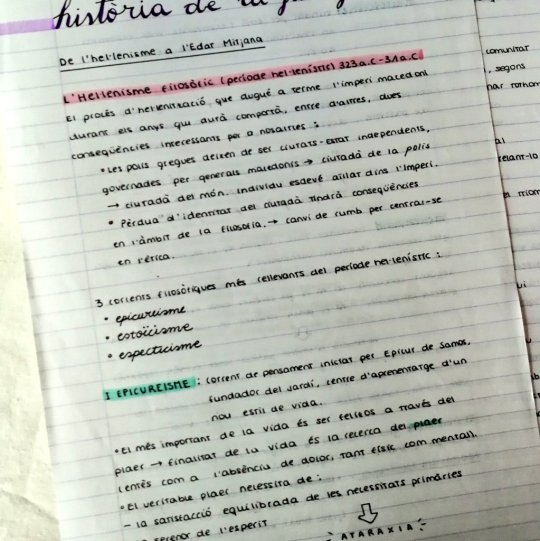 història de la
De l'hel·lenisme a l'Edat Mitjana
L'Hel·lenisme filosòfic (període hel·lenístic) 323 a.C - 31 a.C
El procés d'hel·lenització que dugué a terme l'imperi macedoni
durant els anys que durà comportà, entre d'altres, dues
conseqüències interessants per a nosaltres :
• Les polis gregues deixen de ser ciutats-estat independents,
governades per generals macedonis → ciutadà de la polis
→ ciutadà del món. Individu esdevé aïllat dins l'imperi.
• Pèrdua d'identitat del ciutadà tindrà conseqüències
en l'àmbit de la filosofia. → canvi de rumb per centrar-se
en l'ètica.
3 corrents filosòfiques més rellevants del període hel·lenístic :
• epicureisme
• estoïcisme
• especticisme
I EPICUREISME : corrent de pensament iniciat per Epicur de Samos,
fundador del Jardí, centre d'aprenentatge d'un
nou estil de vida.
• El més important de la vida és ser feliços a través del
plaer → finalitat de la vida és la recerca del plaer
(entès com a l'absència de dolor, tant físic com mental).
• El veritable plaer necessita de :
- la satisfacció equilibrada de les necessitats primàries
serenor de l'esperit
ATARAXIA :
comunitat
, segons
al